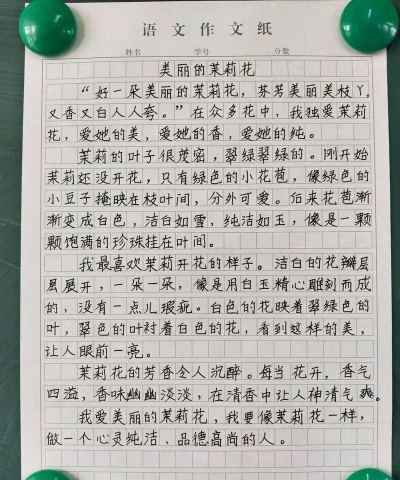 语文作文纸
姓名 学号 分数
美丽的茉莉花
“好一朵美丽的茉莉花，芬芳美丽美枝丫，
又香又白人人夸。”在众多花中，我独爱茉莉
花，爱她的美，爱她的香，爱她的纯。
茉莉的叶子很茂密，翠绿翠绿的。刚开始
茉莉还没开花，只有绿色的小花苞，像绿色的
小豆子掩映在枝叶间，分外可爱。后来花苞渐
渐变成白色，洁白如雪，纯洁如玉，像是一颗
颗饱满的珍珠挂在叶间。
我最喜欢茉莉开花的样子。洁白的花瓣层
层展开，一朵一朵，像是用白玉精心雕刻而成
的，没有一点儿瑕疵。白色的花映着翠绿色的
叶，翠色的叶衬着白色的花，看到这样的美，
让人眼前一亮。
茉莉花的芳香令人沉醉。每当花开，香气
四溢，香味幽幽淡淡，在清香中让人神清气爽。
我爱美丽的茉莉花，我要像茉莉花一样，
做一个心灵纯洁、品德高尚的人。